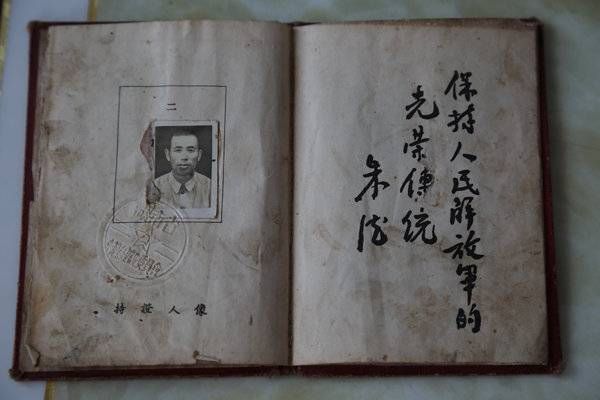 二
持證人像
保持人民解放軍的
光荣傳統
朱德